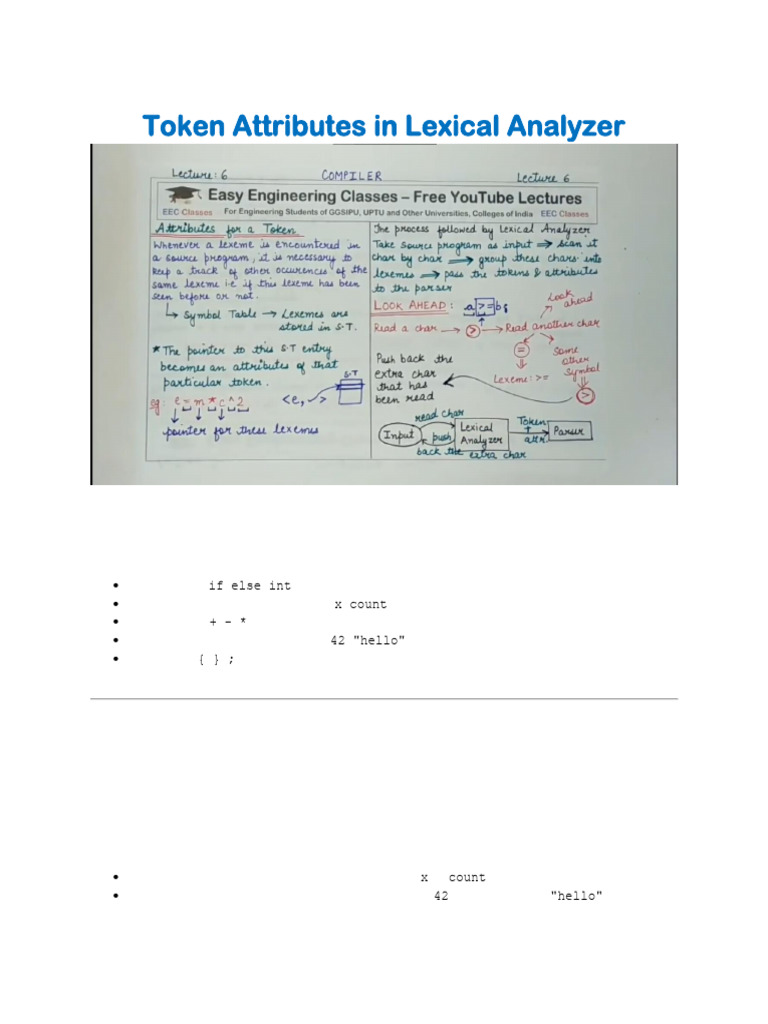 Token Attributes in Lexical Analyzer
Lecture: 6 COMPILER Lecture 6
Easy Engineering Classes – Free YouTube Lectures
EEC Classes For Engineering Students of GGSIPU, UPTU and Other Universities, Colleges of India EEC Classes
Attributes for a Token
Whenever a lexeme is encountered in
a source program, it is necessary to
keep a track of other occurences of the
same lexeme i.e if this lexeme has been
seen before or not.
↳ Symbol Table → Lexemes are
stored in S.T.
* The pointer to this S.T entry
becomes an attributes of that
particular token.
eg: e = m * c ^ 2
<e, > S.T
pointer for these lexemes
The process followed by Lexical Analyzer
Take source program as input ⇒ scan it
char by char ⇒ group these chars into
lexemes ⇒ pass the tokens & attributes
to the parser
LOOK AHEAD: a >= b;
Look
ahead
Read a char → > → Read another char
=
Some
other
Symbol
>
Lexeme: >=
Push back the
extra char
that has
been read
read char
Input
push
back the extra char
Lexical
Analyzer
Token
+
attr.
Parser
• if else int
• x count
• + - *
• 42 "hello"
• { } ;
• x count
• 42 "hello"